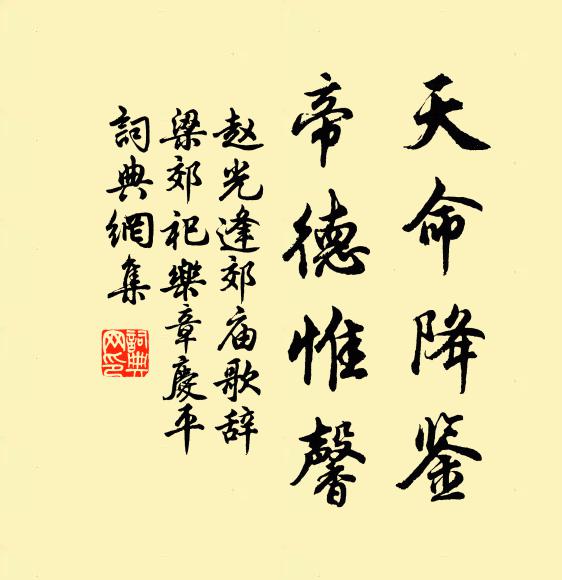 天命降鉴
帝德惟馨
赵光逢郊庙歌辞
梁郊祀樂章慶平
詞典網集
詞典
网印